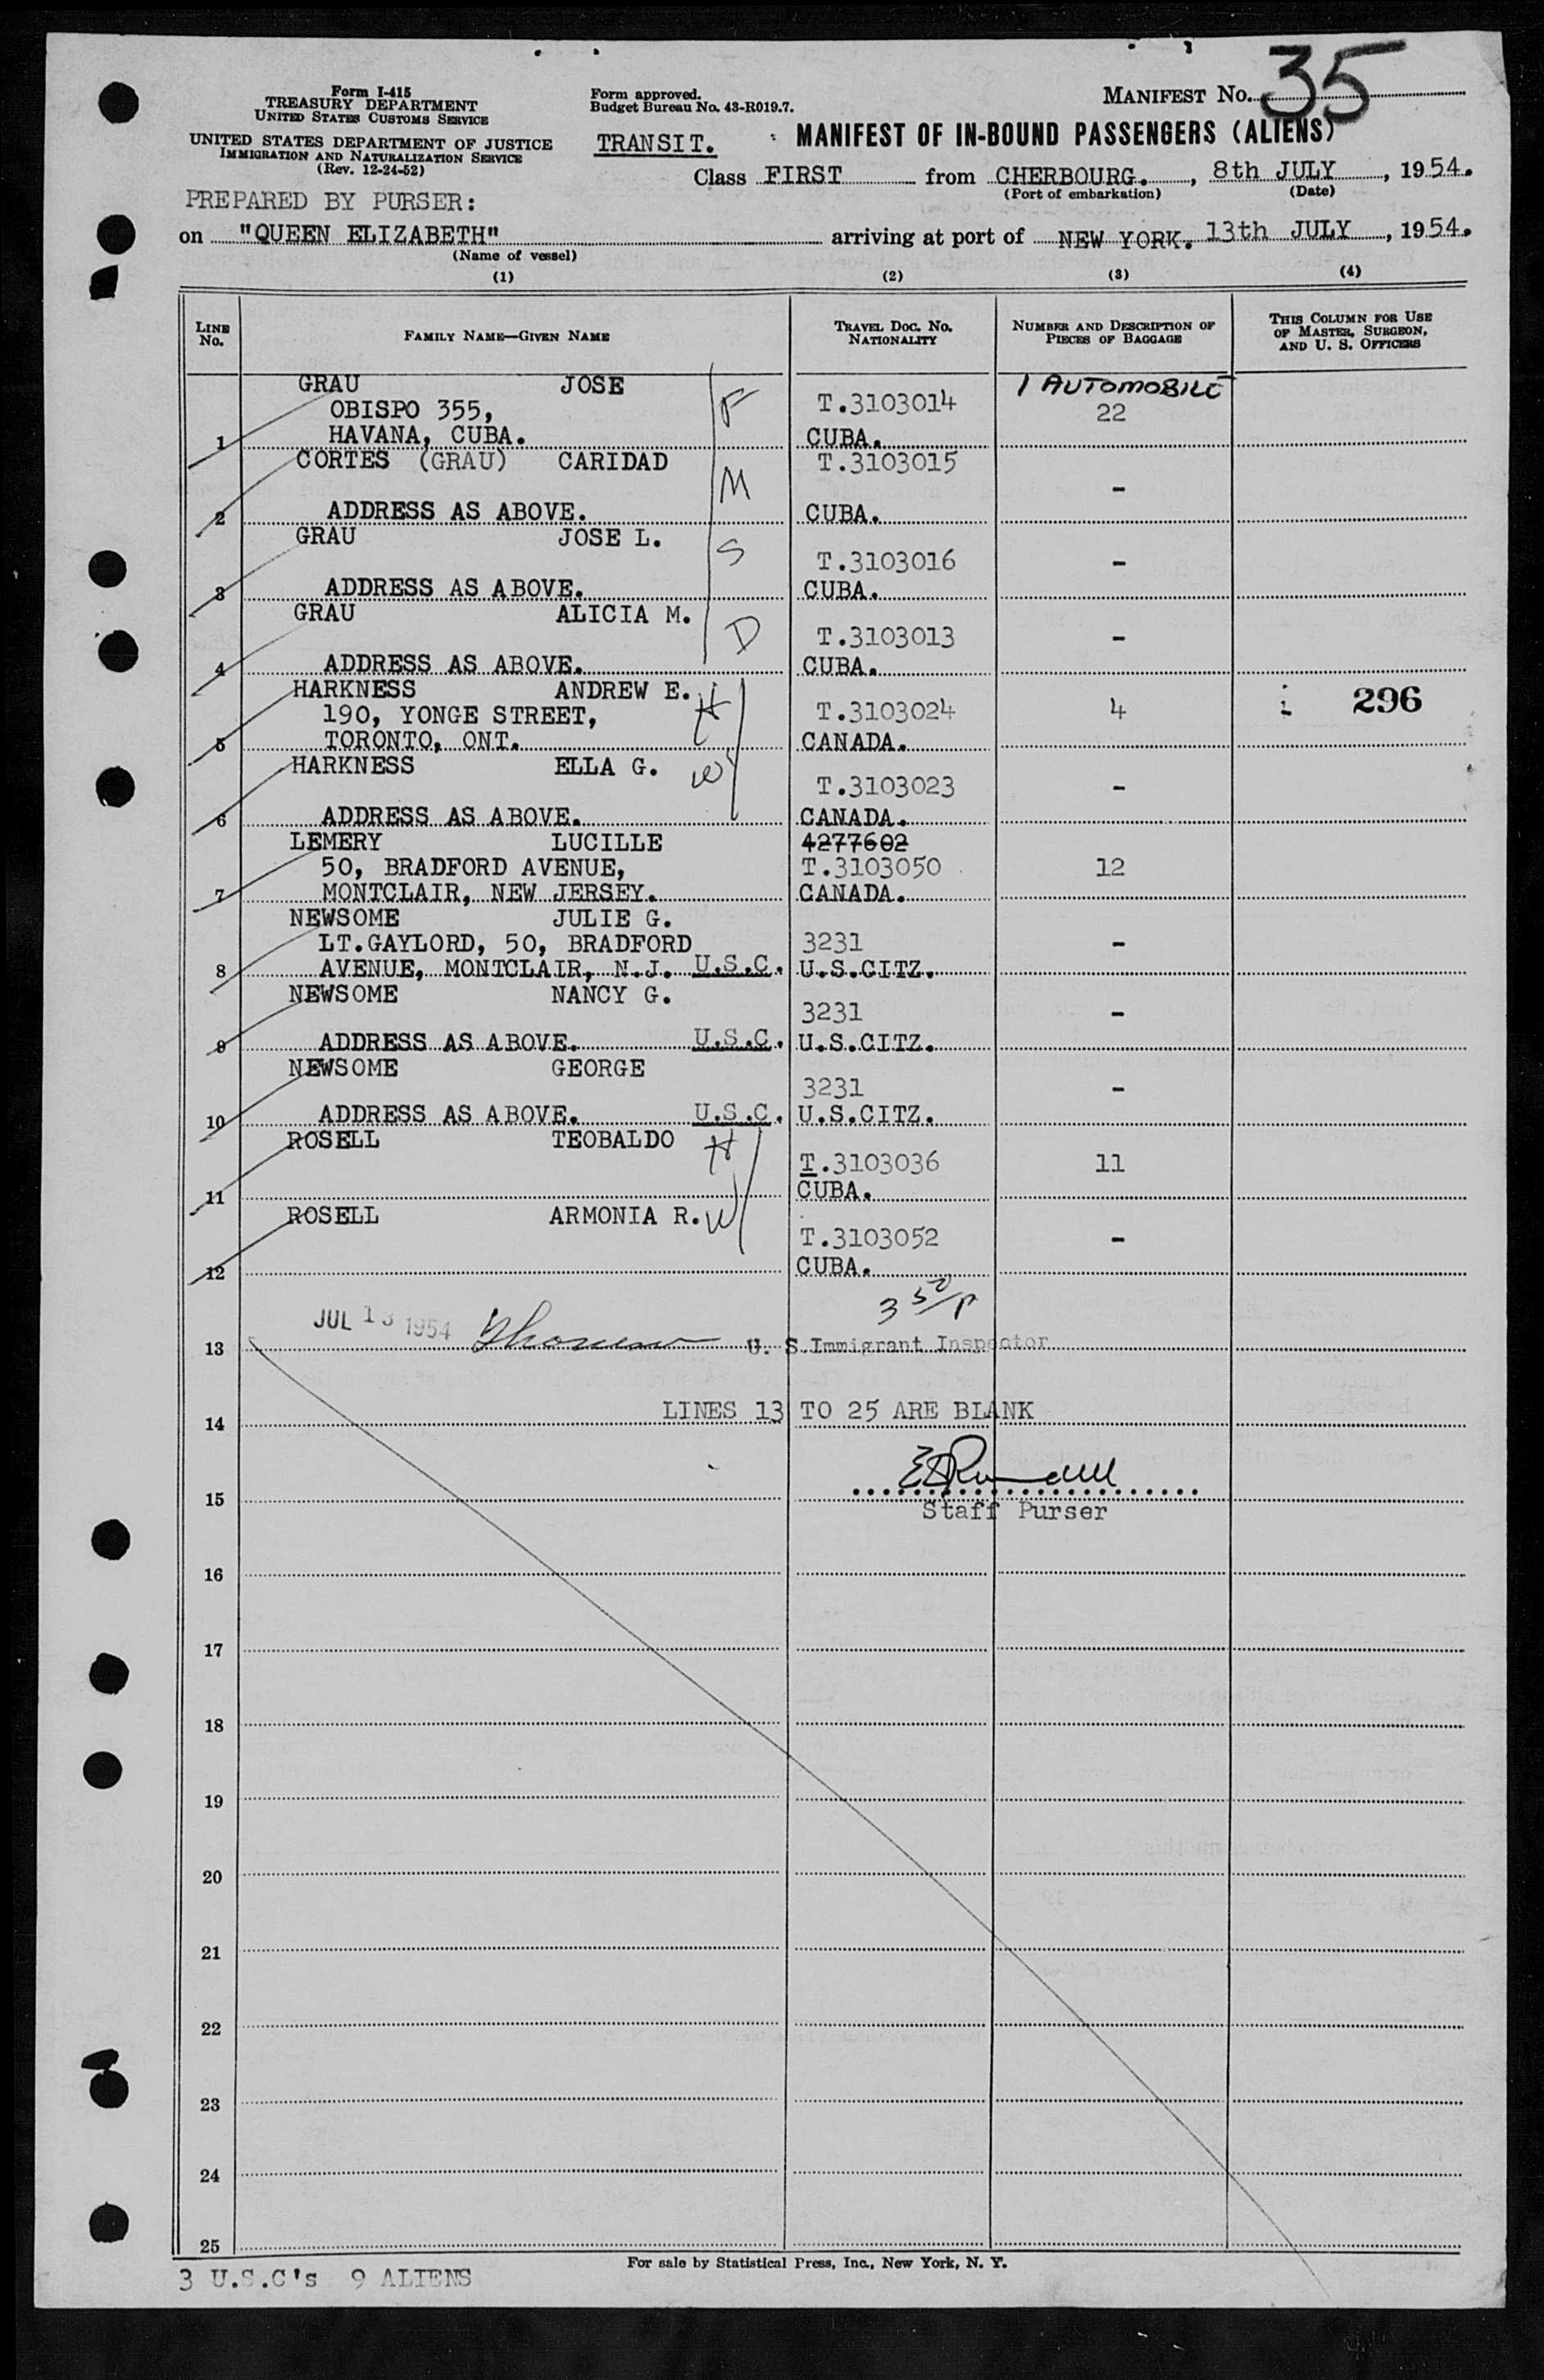 Form I-415
TREASURY DEPARTMENT
UNITED STATES CUSTOMS SERVICE
UNITED STATES DEPARTMENT OF JUSTICE
IMMIGRATION AND NATURALIZATION SERVICE
(Rev. 12-24-52)
Form approved.
Budget Bureau No. 43-R019.7.
MANIFEST No. 35
TRANSIT. MANIFEST OF IN-BOUND PASSENGERS (ALIENS)
Class FIRST from CHERBOURG. , 8th JULY , 1954.
(Port of embarkation) (Date)
PREPARED BY PURSER:
on "QUEEN ELIZABETH" arriving at port of NEW YORK. 13th JULY , 1954.
(Name of vessel)
(1) (2) (3) (4)
LINE No. FAMILY NAME—GIVEN NAME TRAVEL DOC. No. NATIONALITY NUMBER AND DESCRIPTION OF PIECES OF BAGGAGE THIS COLUMN FOR USE OF MASTER, SURGEON, AND U. S. OFFICERS
GRAU JOSE F 1 AUTOMOBILE
OBISPO 355, T.3103014 22
1 HAVANA, CUBA. CUBA.
CORTES (GRAU) CARIDAD M T.3103015 -
2 ADDRESS AS ABOVE. CUBA.
GRAU JOSE L. S
T.3103016 -
3 ADDRESS AS ABOVE. CUBA.
GRAU ALICIA M. D
T.3103013 -
4 ADDRESS AS ABOVE. CUBA.
HARKNESS ANDREW E. H
190, YONGE STREET, T.3103024 4 i 296
5 TORONTO, ONT. CANADA.
HARKNESS ELLA G. W
T.3103023 -
6 ADDRESS AS ABOVE. CANADA.
LEMERY LUCILLE 4277602
50, BRADFORD AVENUE, T.3103050 12
7 MONTCLAIR, NEW JERSEY. CANADA.
NEWSOME JULIE G.
LT.GAYLORD, 50, BRADFORD 3231 -
8 AVENUE, MONTCLAIR, N.J. U.S.C. U.S.CITZ.
NEWSOME NANCY G.
3231 -
9 ADDRESS AS ABOVE. U.S.C. U.S.CITZ.
NEWSOME GEORGE
3231 -
10 ADDRESS AS ABOVE. U.S.C. U.S.CITZ.
ROSELL TEOBALDO H
T.3103036 11
11 CUBA.
ROSELL ARMONIA R. W
T.3103052 -
12 CUBA.
3 50/P
JUL 13 1954
13 U. S. Immigrant Inspector
LINES 13 TO 25 ARE BLANK
14
15
Staff Purser
16
17
18
19
20
21
22
23
24
25
For sale by Statistical Press, Inc., New York, N. Y.
3 U.S.C's 9 ALIENS